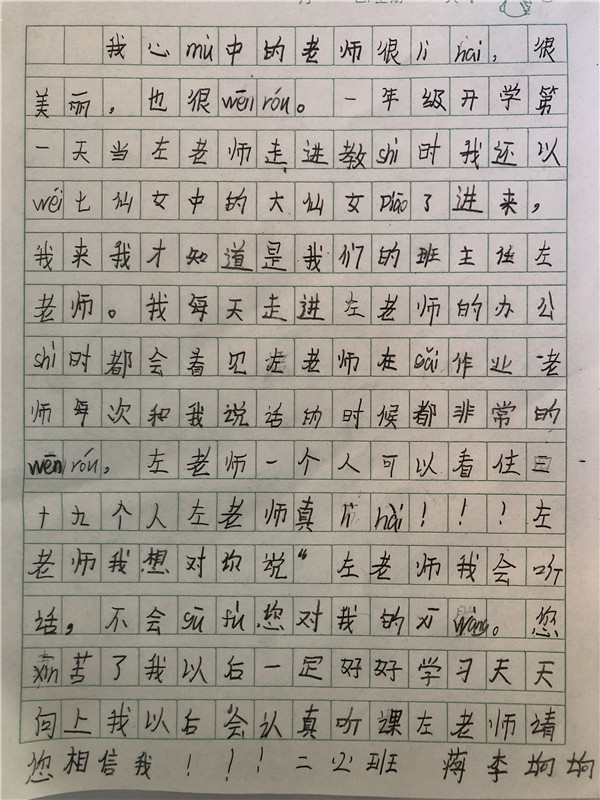 我心mù中的老师很lì hai，很
美丽，也很wēn róu。一年级开学第
一天当左老师走进教shì时我还以
wéi七仙女中的大仙女piāo了进来，
我来我才知道是我们的班主任左
老师。我每天走进左老师的办公
shì时都会看见左老师在gǎi作业老
师每次和我说话的时候都非常的
wēn róu，左老师一个人可以看住三
十九个人左老师真lì hài！！！左
老师我想对你说“左老师我会听
话，不会gū fù您对我的xī wàng。您
xīn苦了我以后一定好好学习天天
向上我以后会认真听课左老师请
您相信我！！！二 班 蒋李垧垧